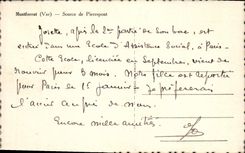 Montferrat (Var) — Source de Pierrepont
Josette, après le 2me partie de son bac, est
entrée dans une Ecole d'Assistance Sociale, à Paris
Cette Ecole, licenciée en Septembre, vient de
rouvrir pour 3 mois. Notre fille est repartie
pour Paris le 15 janvier. Je préférerais
l'avoir auprès de nous.
Encore mille amitiés